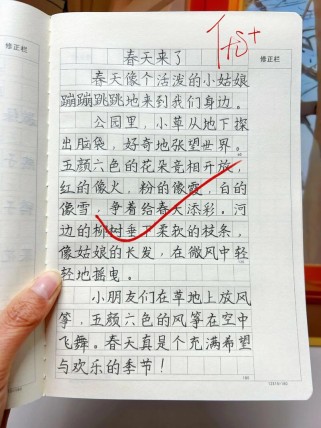 优+
修正栏
修正栏
春天来了
春天像个活泼的小姑娘
蹦蹦跳跳地来到我们身边。
公园里，小草从地下探
出脑袋，好奇地张望世界。
五颜六色的花朵竞相开放，
红的像火，粉的像霞，白的
像雪，争着给春天添彩。河
边的柳树垂下柔软的枝条，
像姑娘的长发，在微风中轻
轻地摇曳。
小朋友们在草地上放风
筝，五颜六色的风筝在空中
飞舞。春天真是个充满希望
与欢乐的季节！